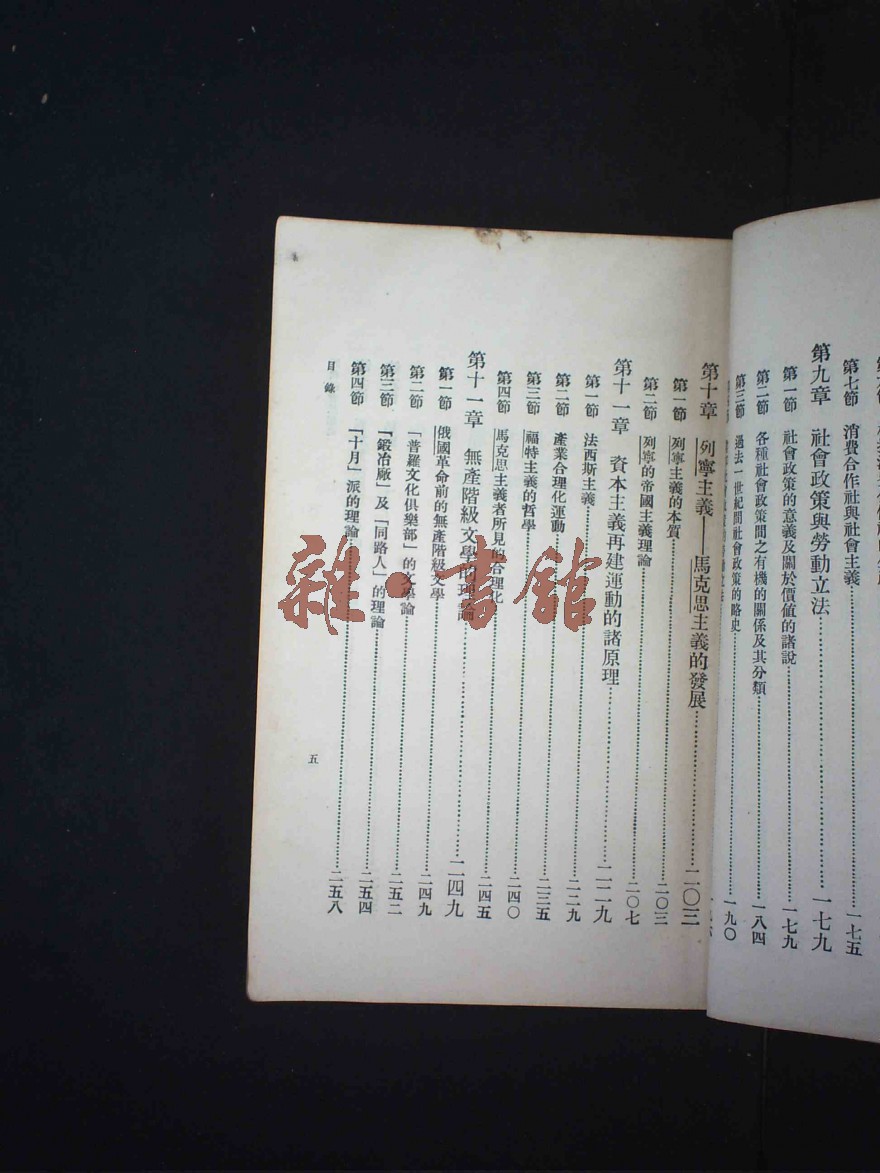 第七節　消費合作社與社會主義……一七五
第九章　社會政策與勞動立法……一七九
第一節　社會政策的意義及關於價値的諸說……一七九
第二節　各種社會政策間之有機的關係及其分類……一八四
第三節　過去一世紀間社會政策的略史……一九〇
第十章　列寧主義——馬克思主義的發展……二〇三
第一節　列寧主義的本質……二〇三
第二節　列寧的帝國主義理論……二〇七
第十一章　資本主義再建運動的諸原理……二二九
第一節　法西斯主義……二二九
第二節　產業合理化運動……二三五
第三節　福特主義的哲學……二四〇
第四節　馬克思主義者所見的合理化……二四五
第十一章　無產階級文學的理論……二四九
第一節　俄國革命前的無產階級文學……二四九
第二節　「普羅文化俱樂部」的文學論……二五二
第三節　「鍛冶廠」及「同路人」的理論……二五四
第四節　「十月」派的理論……二五八
目錄
五
雜·書館